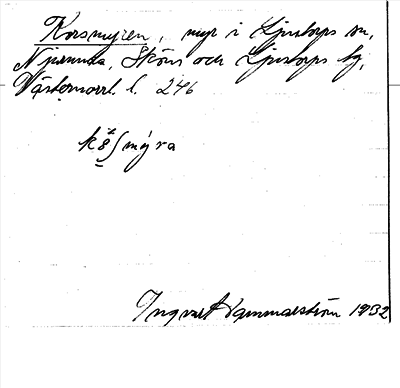 Korsmyren, myr i Ljustorps sn,
Njurunda, Sköns och Ljustorps tg,
Västernorrl. l. 246
Ingvart Hammarström 1932